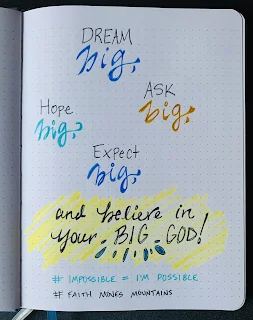 DREAM
big,
ASK
big,
Hope
big,
Expect
big,
and believe in
your BIG GOD!
# IMPOSSIBLE = I'M POSSIBLE
# FAITH MOVES MOUNTAINS